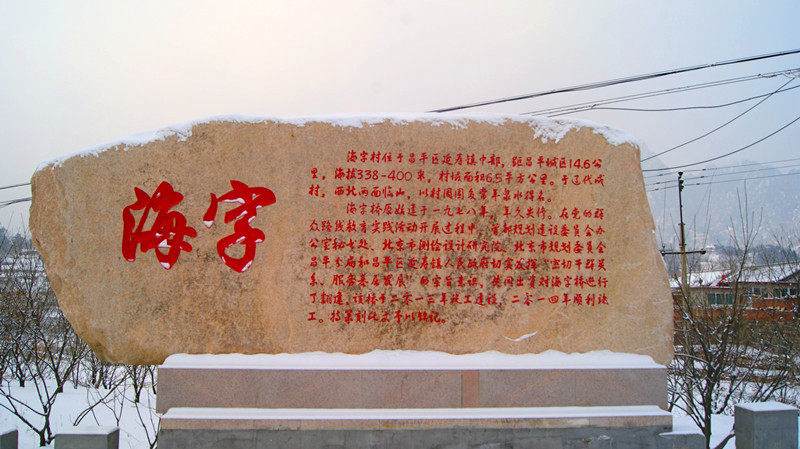 海字
海字村位于昌平区延寿镇中部，距昌平城区14.6公
里，海拔338-400米，村域面积6.5平方公里。于辽代成
村，西北两面临山，以村周围多常年泉水得名。
海字桥原始建于一九七八年，年久失修。在党的群
众路线教育实践活动开展过程中，首都规划建设委员会办
公室秘书处、北京市测绘设计研究院、北京市规划委员会
昌平分局和昌平区延寿镇人民政府切实发挥"密切干群关
系、服务基层发展"的宗旨意识，共同出资对海字桥进行
了翻建，该桥于二零一三年竣工建设，二零一四年顺利竣
工。特篆刻此文予以铭记。